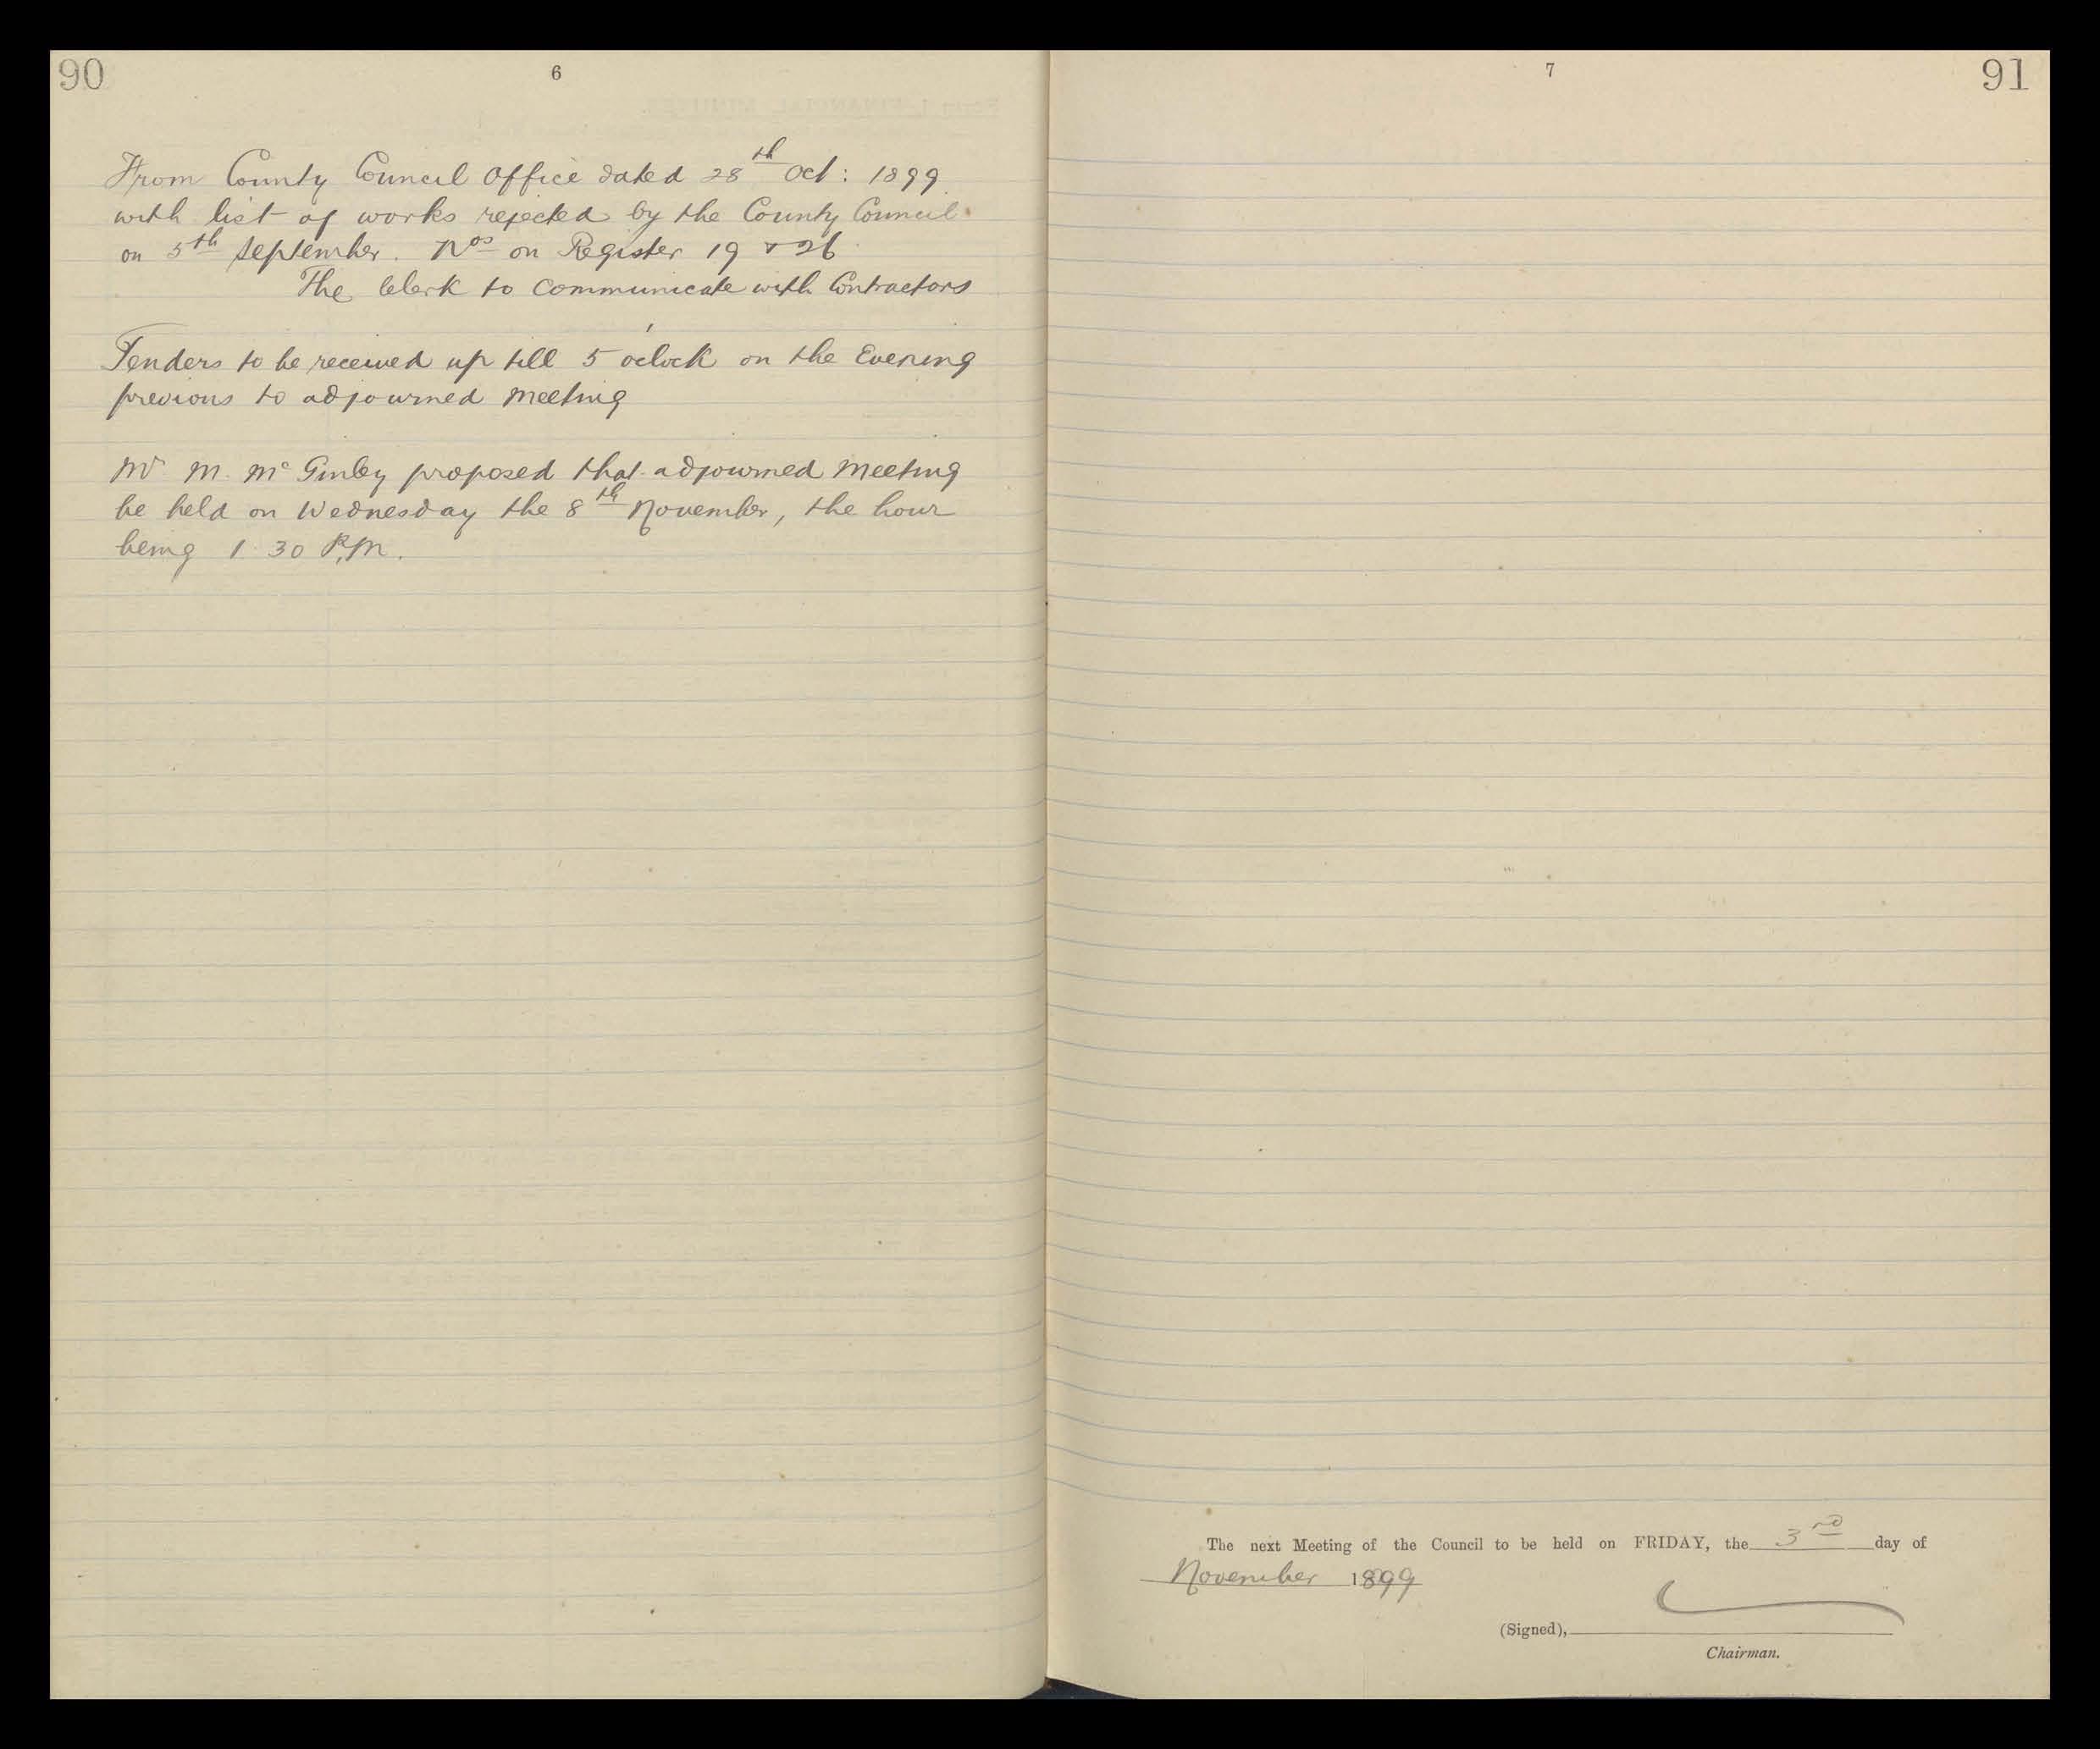 90
6
From County Council Office dated 28th Oct: 1899
with list of works rejected by the County Council
on 5th September. Nos on Register 19 & 26
The Clerk to Communicate with Contractors
Tenders to be received up till 5 o'clock on the Evening
previous to adjourned Meeting
Mr M. McGinley proposed that adjourned Meeting
be held on Wednesday the 8th November, the hour
being 1.30 P.M.
7
91
The next Meeting of the Council to be held on FRIDAY, the 3rd day of
November 1899
(Signed),
Chairman.